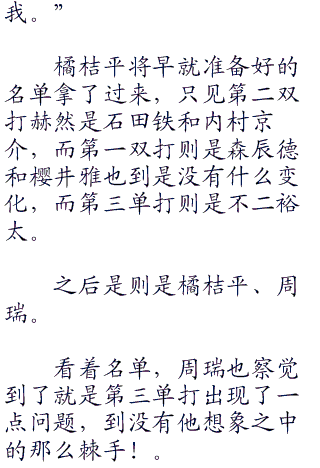 我。”
橘桔平将早就准备好的
名单拿了过来，只见第二双
打赫然是石田铁和内村京
介，而第一双打则是森辰德
和樱井雅也到是没有什么变
化，而第三单打则是不二裕
太。
之后是则是橘桔平、周
瑞。
看着名单，周瑞也察觉
到了就是第三单打出现了一
点问题，到没有他想象之中
的那么棘手！。